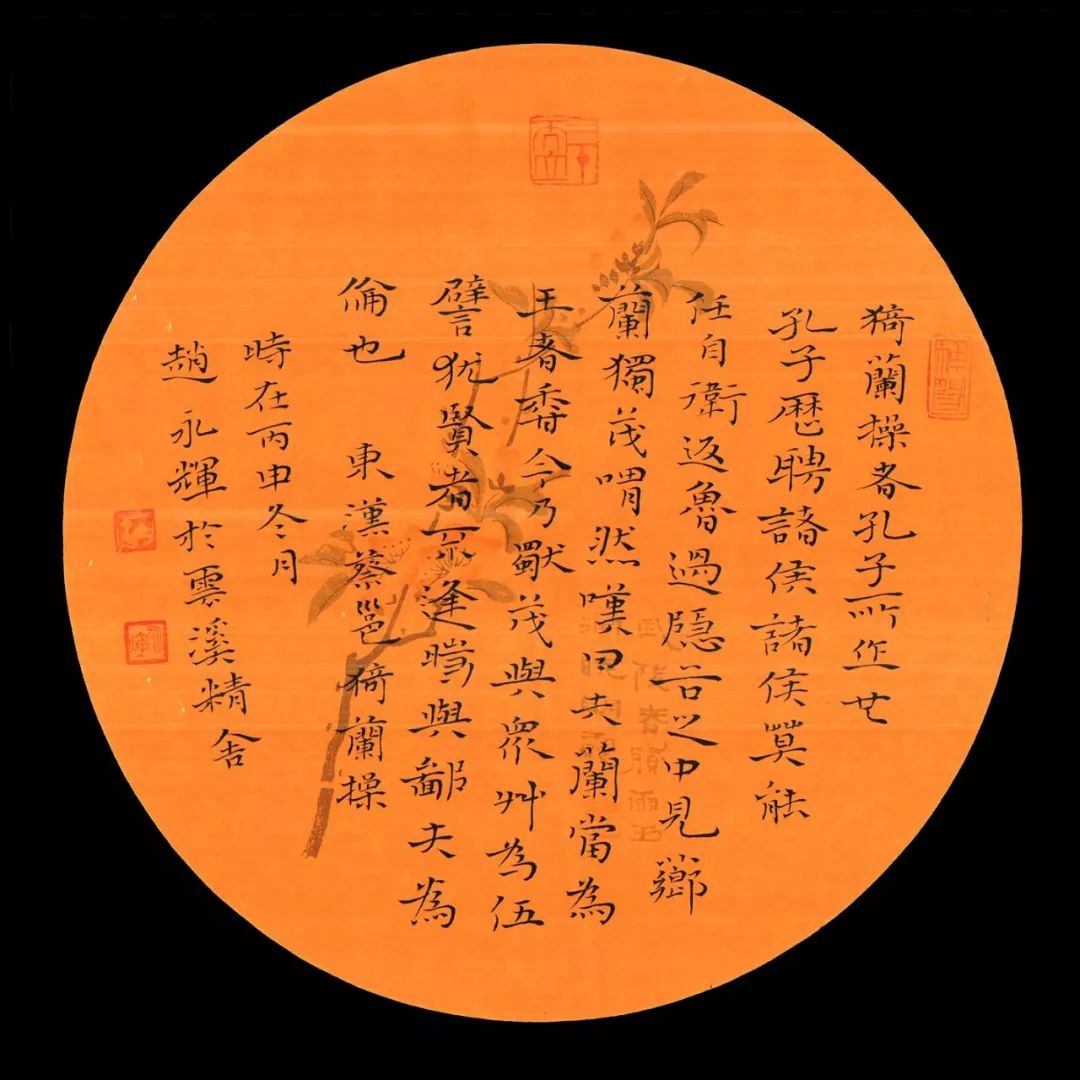 猗蘭操者孔子所作也
孔子歷聘諸侯諸侯莫能
任自衛返魯過隱谷之中見薌
蘭獨茂喟然嘆曰夫蘭當為
王者香今乃獨茂與眾艸為伍
譬猶賢者不逢時與鄙夫為
倫也 東漢蔡邕猗蘭操
時在丙申冬月
趙永輝於雲溪精舍